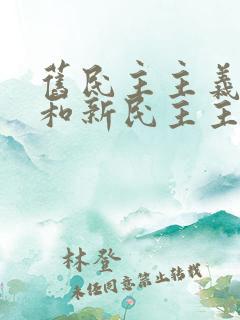 舊民主主義
和新民主主
林登
未經同意禁止轉載